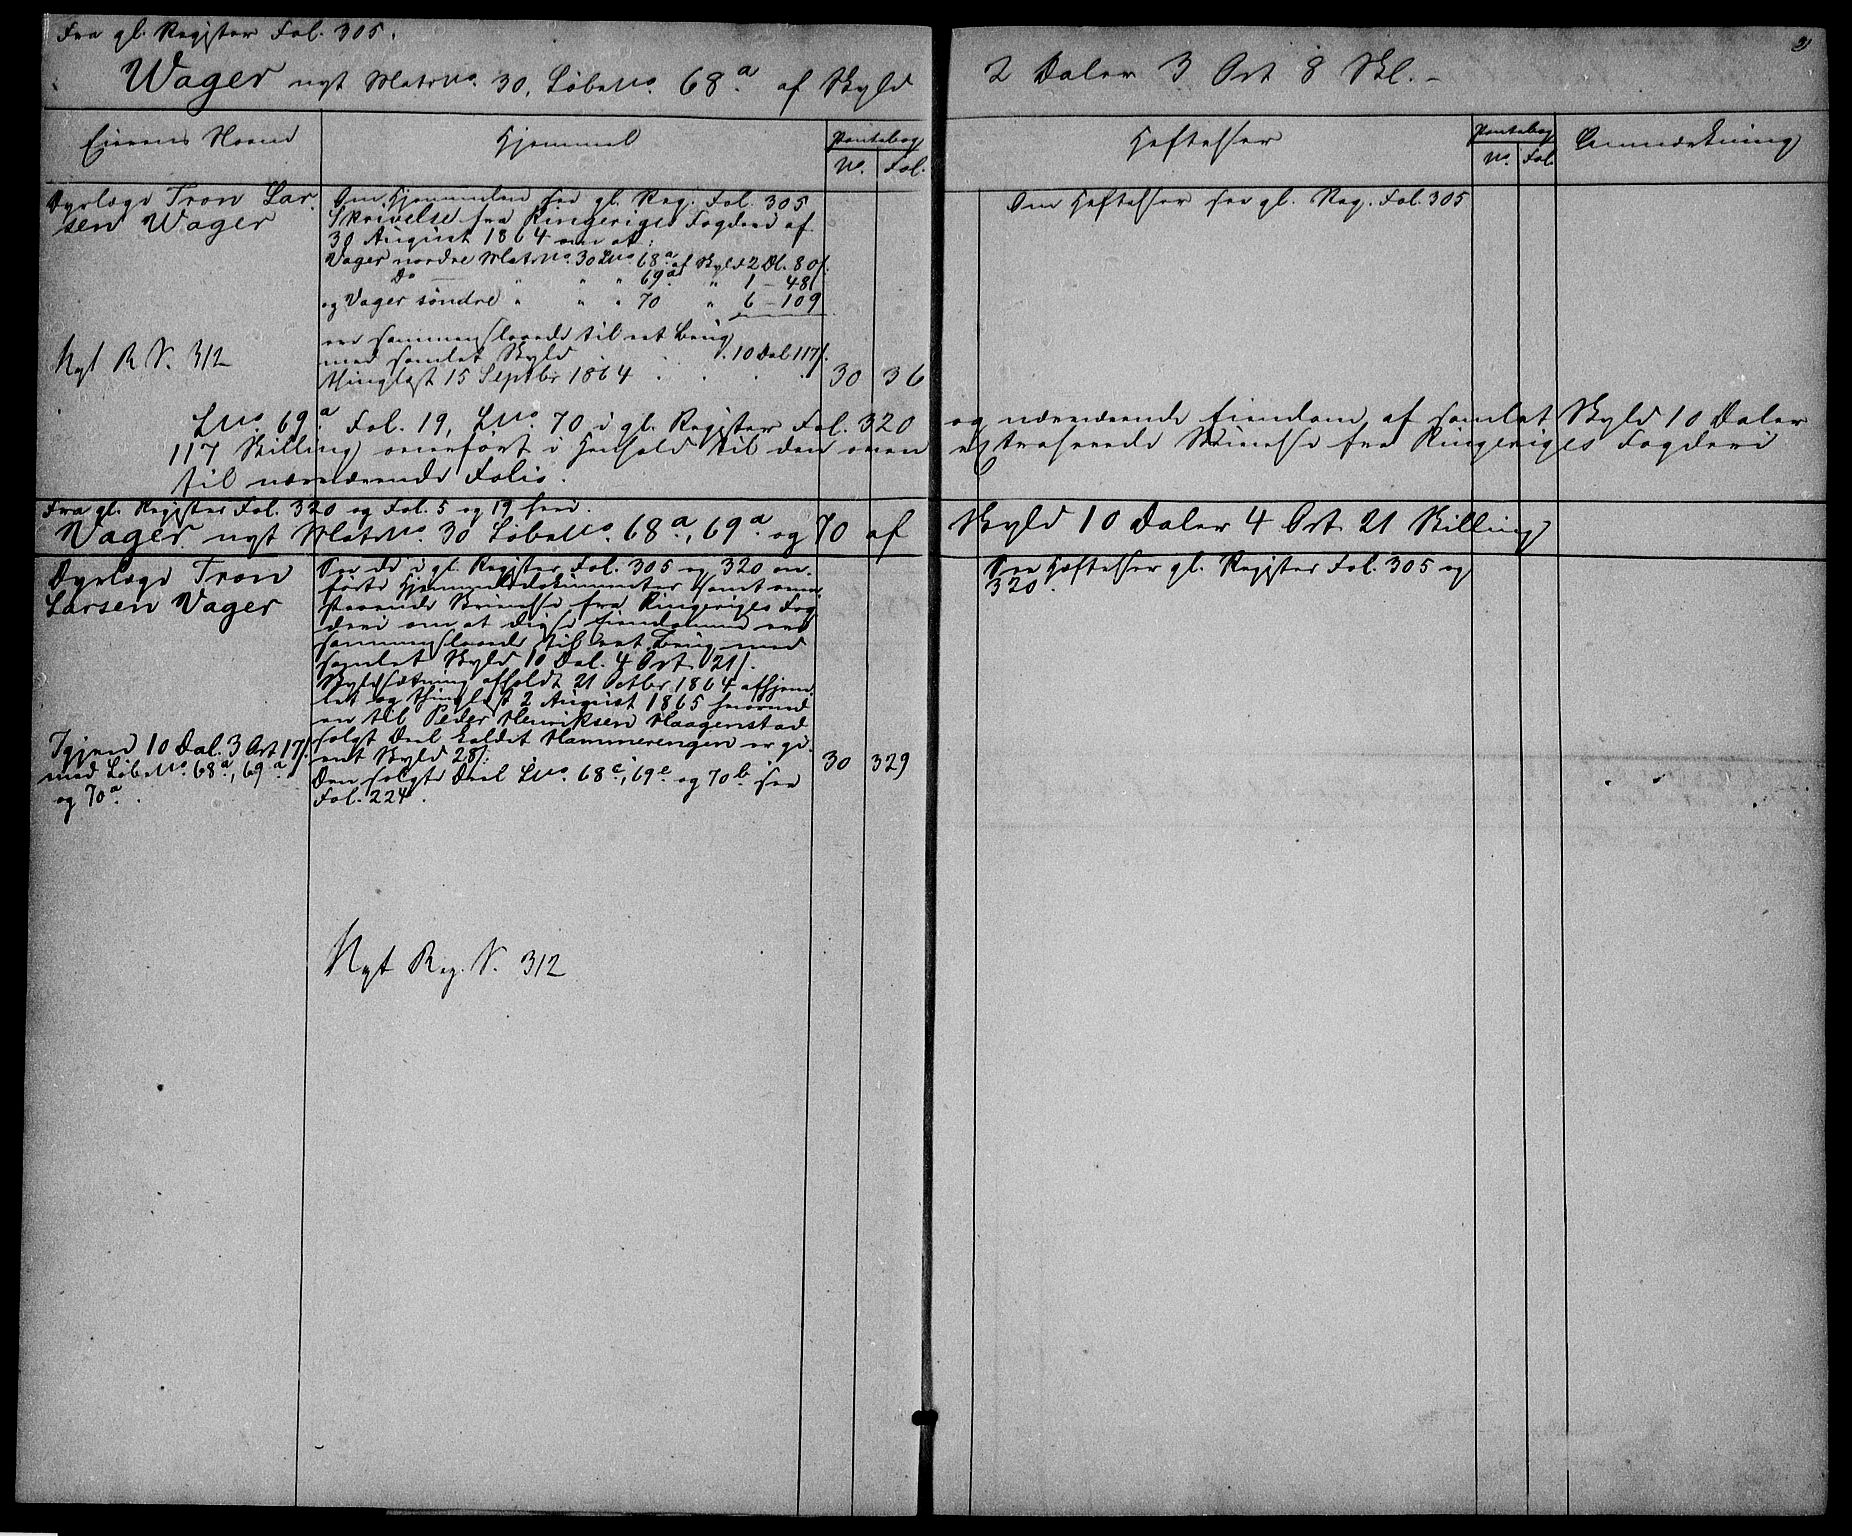 Fra gl. Register Fol. 305.
2
Wager nyt Matr No. 30, Løbe No. 68a. af Skyld 2 Daler 3 Ort 8 Skl. -
Eierens Navn Hjemmel Pantebog Heftelser Pantebog Anmærkning
No. Fol. No. Fol.
Dyrlæge Tron Lar-
sen Wager
Om Hjemmelen see gl. Reg. Fol. 305
Skrivelse fra Ringeriges Fogderi af
30 August 1864 om at:
Vager nordre Matr No. 30 L No. 68a. af Skyld 2 Dl. 80 s.
Do — " " " 69a " 1 - 48 s
og Vager søndre " " " 70 " 6 - 109
ere sammenslaaede til eet Brug
med samlet Skyld . 10 Dal 117 s.
thinglæst 15 Septbr 1864 30 36
Om Heftelser see gl. Reg. Fol. 305
Nyt R V. 312
L No. 69a. Fol. 19, L No. 70 i gl. Register Fol. 320 og nærværende Eiendom af samlet Skyld 10 Daler
117 Skilling overført i Henhold til den oven extraherede Skrivelse fra Ringeriges Fogderi
til nærværende Folio.
Fra gl. Register Fol. 320 og Fol. 5 og 19 heri.
Vager nyt Matr No. 30 Løbe No. 68a., 69a. og 70 af Skyld 10 Daler 4 Ort 21 Skilling
Dyrlæge Tron
Larsen Vager
See de i gl. Register Fol. 305 og 320 an-
førte Hjemmelsdokumenter samt oven-
staaende Skrivelse fra Ringeriges Fog-
deri om at disse Eiendomme ere
sammenslaaede til eet Brug med
samlet Skyld 10 Dal. 4 Ort 21 s.
Skyldsætning afholdt 21 Octbr 1864 afhjem-
let og thinglæst 2 August 1865 hvorved
en til Peder Henriksen Haagenstad
solgt Deel kaldet Hammerengen er gi-
vet Skyld 28 s. 30 329
Den solgte Deel L No. 68c., 69e. og 70b. see
Fol. 224.
See Heftelser gl. Register Fol. 305 og
320.
Igjen 10 Dal. 3 Ort 17 s.
med Løbe No. 68a., 69a.
og 70a.
Nyt Reg. V. 312